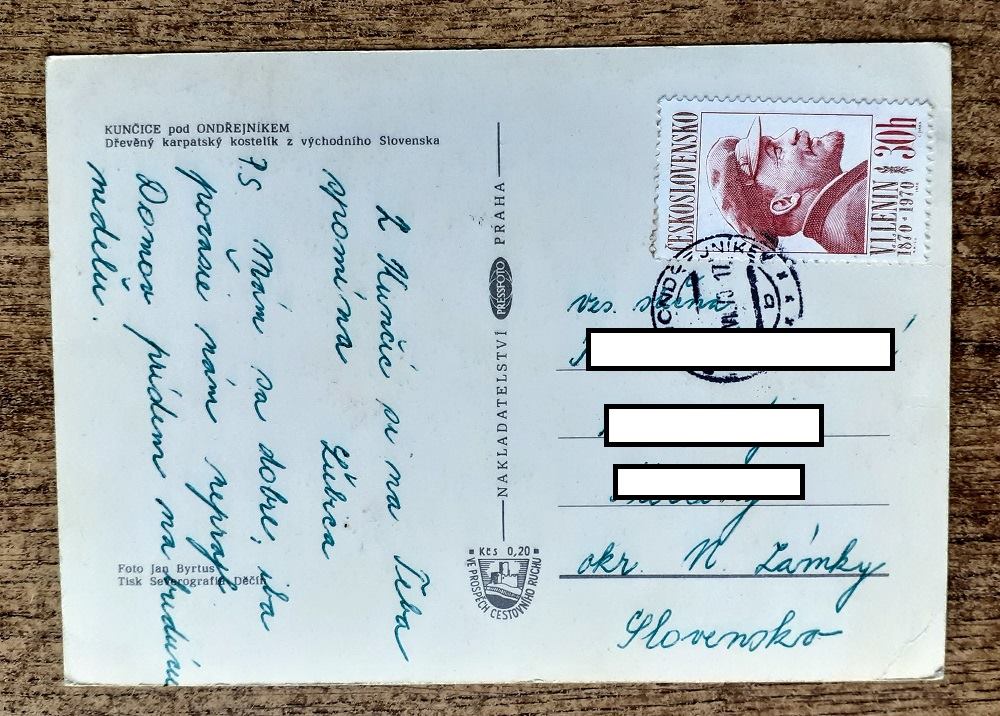 KUNČICE pod ONDŘEJNÍKEM
Dřevěný karpatský kostelík z východního Slovenska
Z Kunčíc si na Teba
spomína Ľubica
P.S Mám sa dobre, iba
počasie nám nepraje
Domov prídem na budúcu
nedeľu.
Foto Jan Byrtus
Tisk Severografia Děčín
NAKLADATELSTVÍ PRESSFOTO PRAHA
Kčs 0,20
VE PROSPĚCH CESTOVNÍHO RUCHU
ČESKOSLOVENSKO
V.I.LENIN
1870 1970
30h
Ves.
okr. N. Zámky
Slovensko